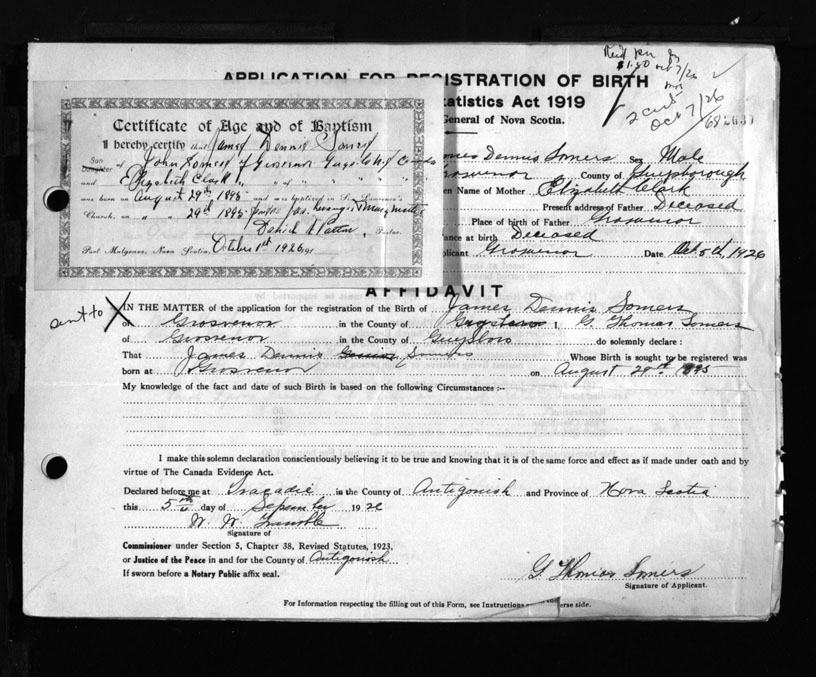 APPLICATION FOR REGISTRATION OF BIRTH
$1.50 Oct 7/26
Oct 7/26
tatistics Act 1919
General of Nova Scotia.
Certificate of Age and of Baptism
I hereby certify that James Dennis Somers
Son
Daughter of John Somers of Grosvenor Guys. Co.
and Elizabeth Clark
was born on August 29th 1895 and was baptized in St. Lawrence's
Church, on " " 29th 1895
Pastor.
Port Mulgrave, Nova Scotia, October 1st 1926
mes Dennis Somers Sex Male
rosvenor County of Guysborough
en Name of Mother Elizabeth Clark
Present address of Father Deceased
Place of birth of Father Grosvenor
ance at birth Deceased
plicant Grosvenor Date Oct 5th, 1926
AFFIDAVIT
sent to X
IN THE MATTER of the application for the registration of the Birth of James Dennis Somers
of Grosvenor in the County of I, G. Thomas Somers
of Grosvenor in the County of Guysboro do solemnly declare :
That James Dennis Somers Whose Birth is sought to be registered was
born at Grosvenor on August 29th 1895
My knowledge of the fact and date of such Birth is based on the following Circumstances :-
I make this solemn declaration conscientiously believing it to be true and knowing that it is of the same force and effect as if made under oath and by
virtue of The Canada Evidence Act.
Declared before me at Tracadie in the County of Antigonish and Province of Nova Scotia
this 5th day of September 192
W. W.
Signature of
Commissioner under Section 5, Chapter 38, Revised Statutes, 1923,
or Justice of the Peace in and for the County of Antigonish
If sworn before a Notary Public affix seal.
G. Thomas Somers
Signature of Applicant.
For Information respecting the filling out of this Form, see Instructions erse side.